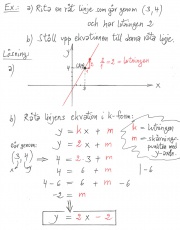 Ex: a) Rita en rät linje som går genom (3, 4)
och har lutningen 2
b) Ställ upp ekvationen till denna räta linje.
Lösning
a)
k = 2 = lutningen
4
x
3
b) Räta linjens ekvation i k-form:
y = k x + m
y = 2 x + m
(3, 4)
x y
4 = 2·3 + m
4 = 6 + m
4 - 6 = 6 + m - 6
-2 = m
y = 2x - 2
k = lutningen
m = skärnings-
punkten med
y-axeln
| - 6